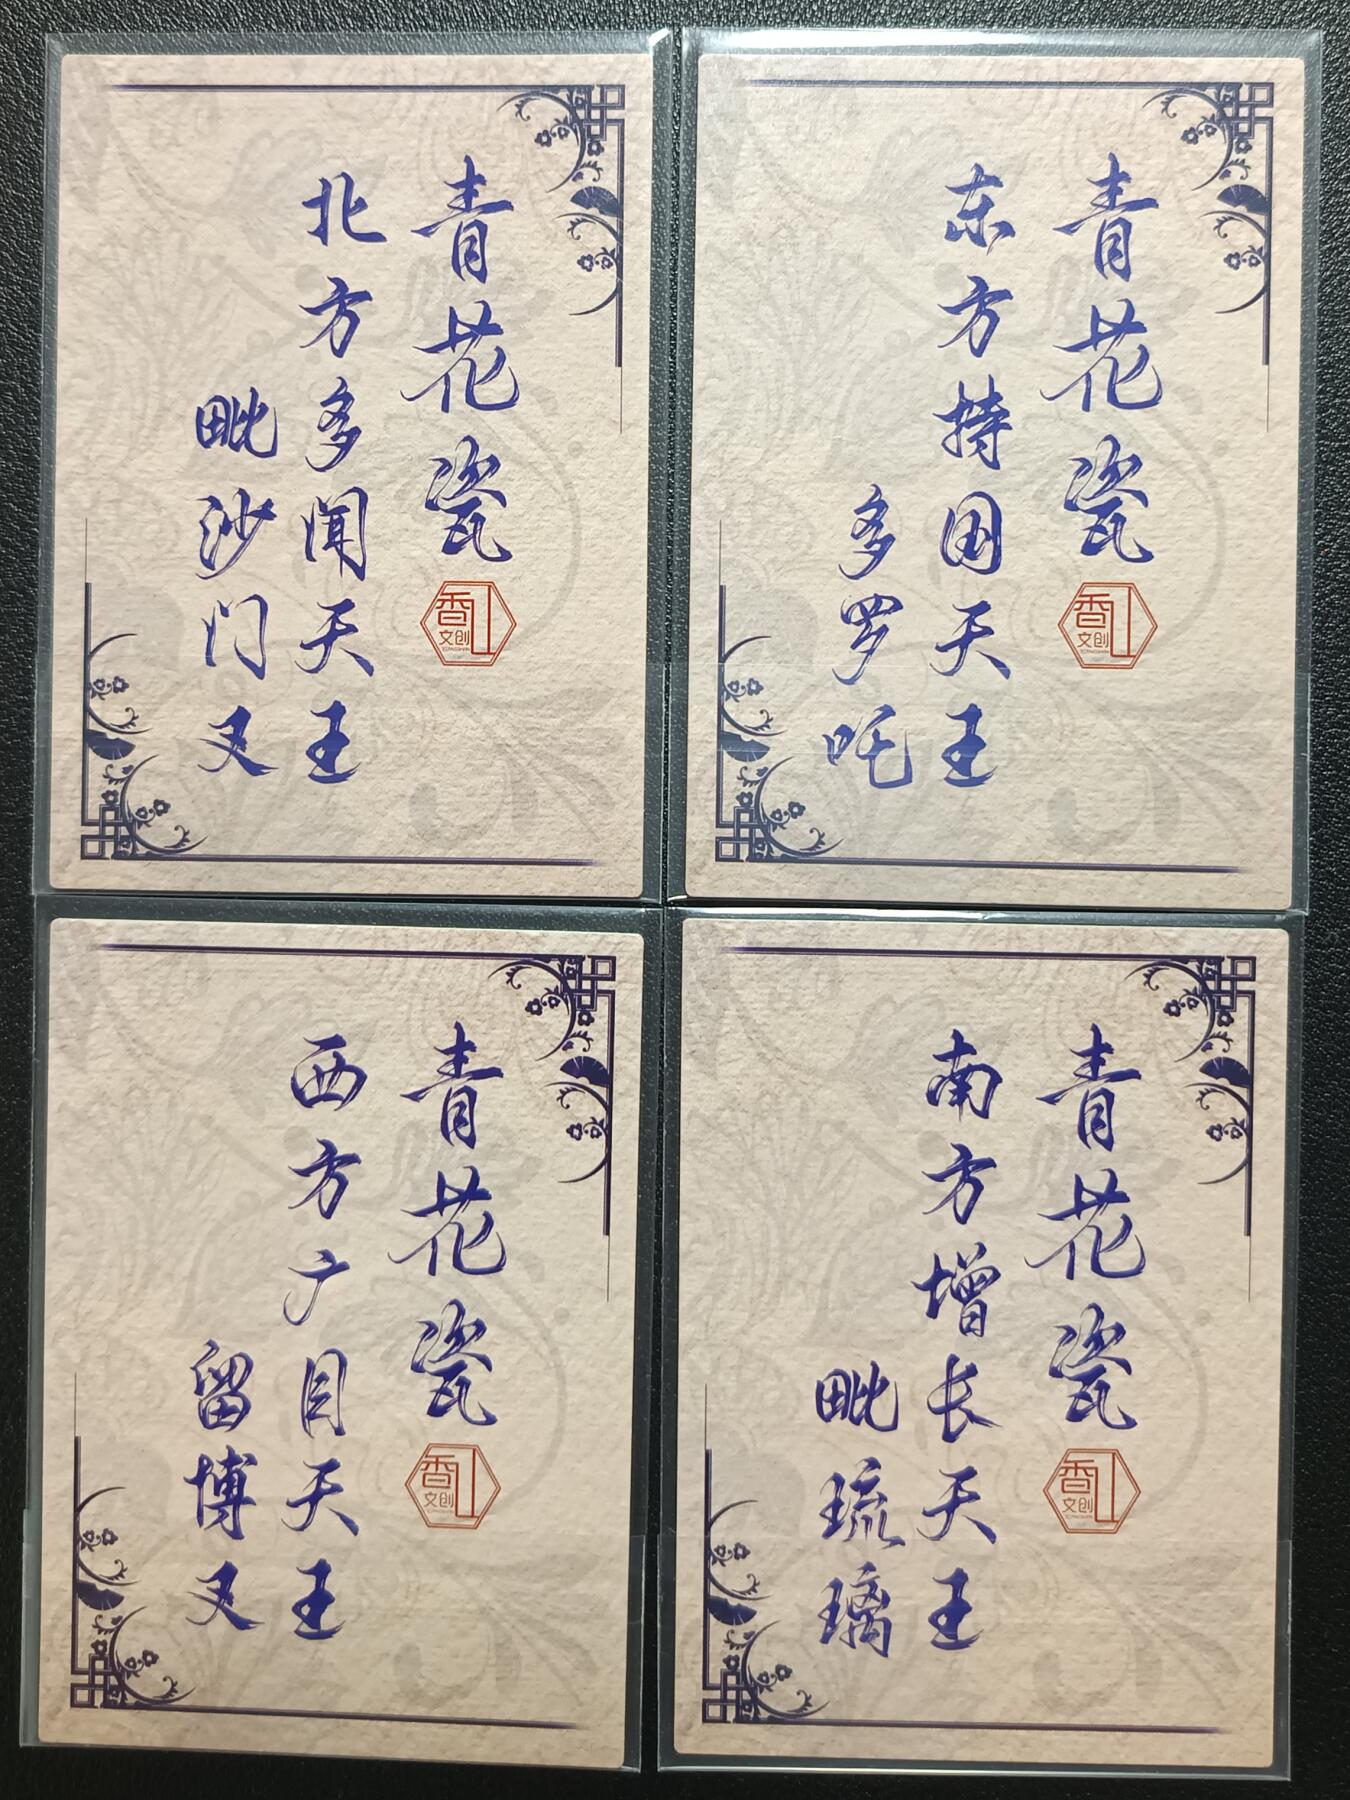 青花瓷
北方多闻天王
毗沙门叉
香山
文创
青花瓷
东方持国天王
多罗吒
香山
文创
青花瓷
西方广目天王
留博叉
香山
文创
青花瓷
南方增长天王
毗琉璃
香山
文创